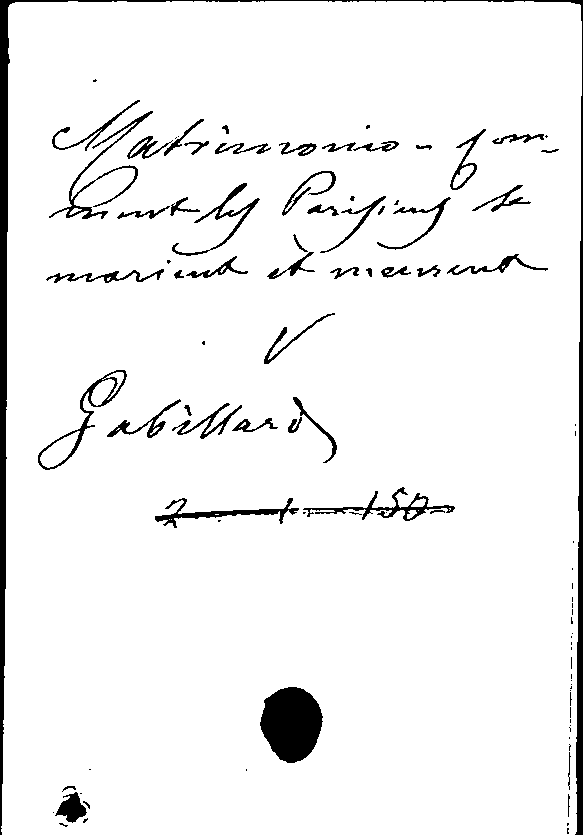 Matrimonio - com-
ment les Parisiens se
marient et meurent
V
Gabillard
2 1 150